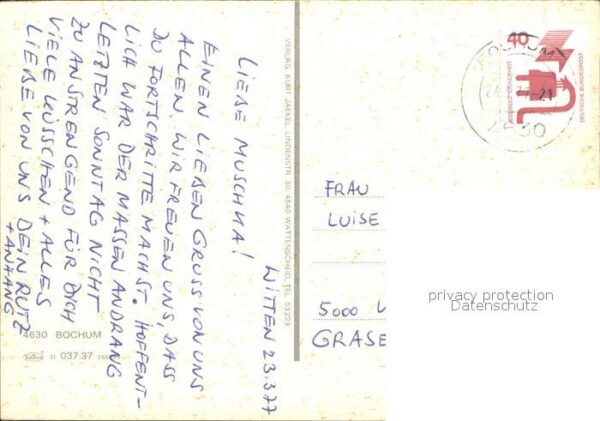 WITTEN 23.3.77
LIEBE MUSCHKA!
EINEN LIEBEN GRUSS VON UNS
ALLEN. WIR FREUEN UNS, DASS
DU FORTSCHRITTE MACHST. HOFFENT-
LICH WAR DER MASSEN ANDRANG
LETZTEN SONNTAG NICHT
ZU ANSTRENGEND FÜR DICH
VIELE KÜSSCHEN + ALLES
LIEBE VON UNS DEIN RUTZ
+ ANHANG
4630 BOCHUM
31 037.37
VERLAG KURT JAEKEL, LINDENSTR. 30, 4640 WATTENSCHEID, TEL. 53223
40
JEDERZEIT SICHERHEIT
DEUTSCHE BUNDESPOST
-21
FRAU
LUISE
5000
GRASE
privacy protection
Datenschutz